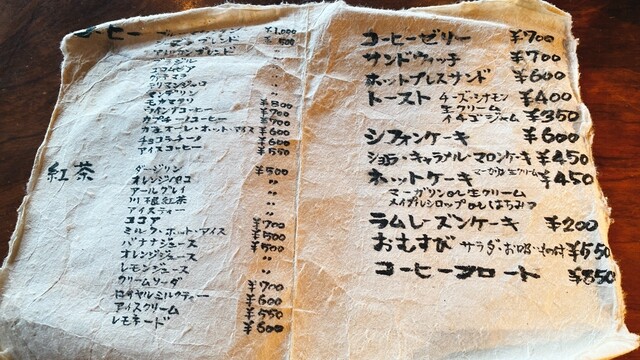 コーヒー ブルー ¥1,000
ブレンド ¥500
アメリカンブレンド 〃
ブラジル 〃
コロンビア 〃
グァテマラ 〃
キリマンジャロ 〃
マンデリン 〃
モカマタリ ¥800
コーヒー ¥700
カプチーノコーヒー ¥700
カフェオーレ・ホット・アイス ¥600
チョコラッチーノ ¥600
アイスコーヒー ¥550
紅茶 ダージリン ¥500
オレンジペコ 〃
アールグレイ 〃
川根紅茶 〃
アイスティー 〃
ココア ¥700
ミルク・ホット・アイス ¥500
バナナジュース ¥500
オレンジジュース 〃
レモンジュース 〃
クリームソーダ ¥700
ロイヤルミルクティー ¥600
アイスクリーム ¥550
レモネード ¥600
コーヒーゼリー ¥700
サンドウィッチ ¥700
ホットプレスサンド ¥600
トースト チーズ・シナモン ¥400
生クリーム
イチゴジャム ¥350
シフォンケーキ ¥600
ショコラ・キャラメル・マロンケーキ ¥450
ホットケーキ マーガリン生クリーム ¥450
マーガリンor生クリーム
メイプルシロップorはちみつ
ラムレーズンケーキ ¥200
おむすび サラダ・お吸いもの付 ¥550
コーヒーフロート ¥850